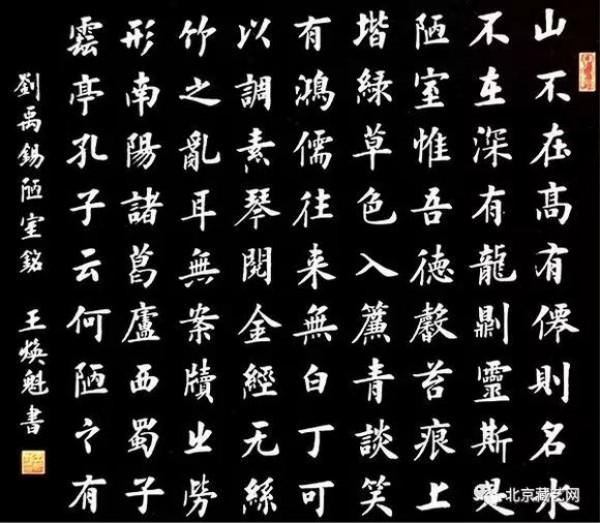 山不在髙有僊則名水
不在深有龍則靈斯是
陋室惟吾德馨苔痕上
堦綠草色入簾青談笑
有鴻儒往来無白丁可
以調素琴閱金經无絲
竹之亂耳無案牘之勞
形南陽諸葛廬西蜀子
雲亭孔子云何陋之有
劉禹錫陋室銘 王煥魁書
北京藏艺网